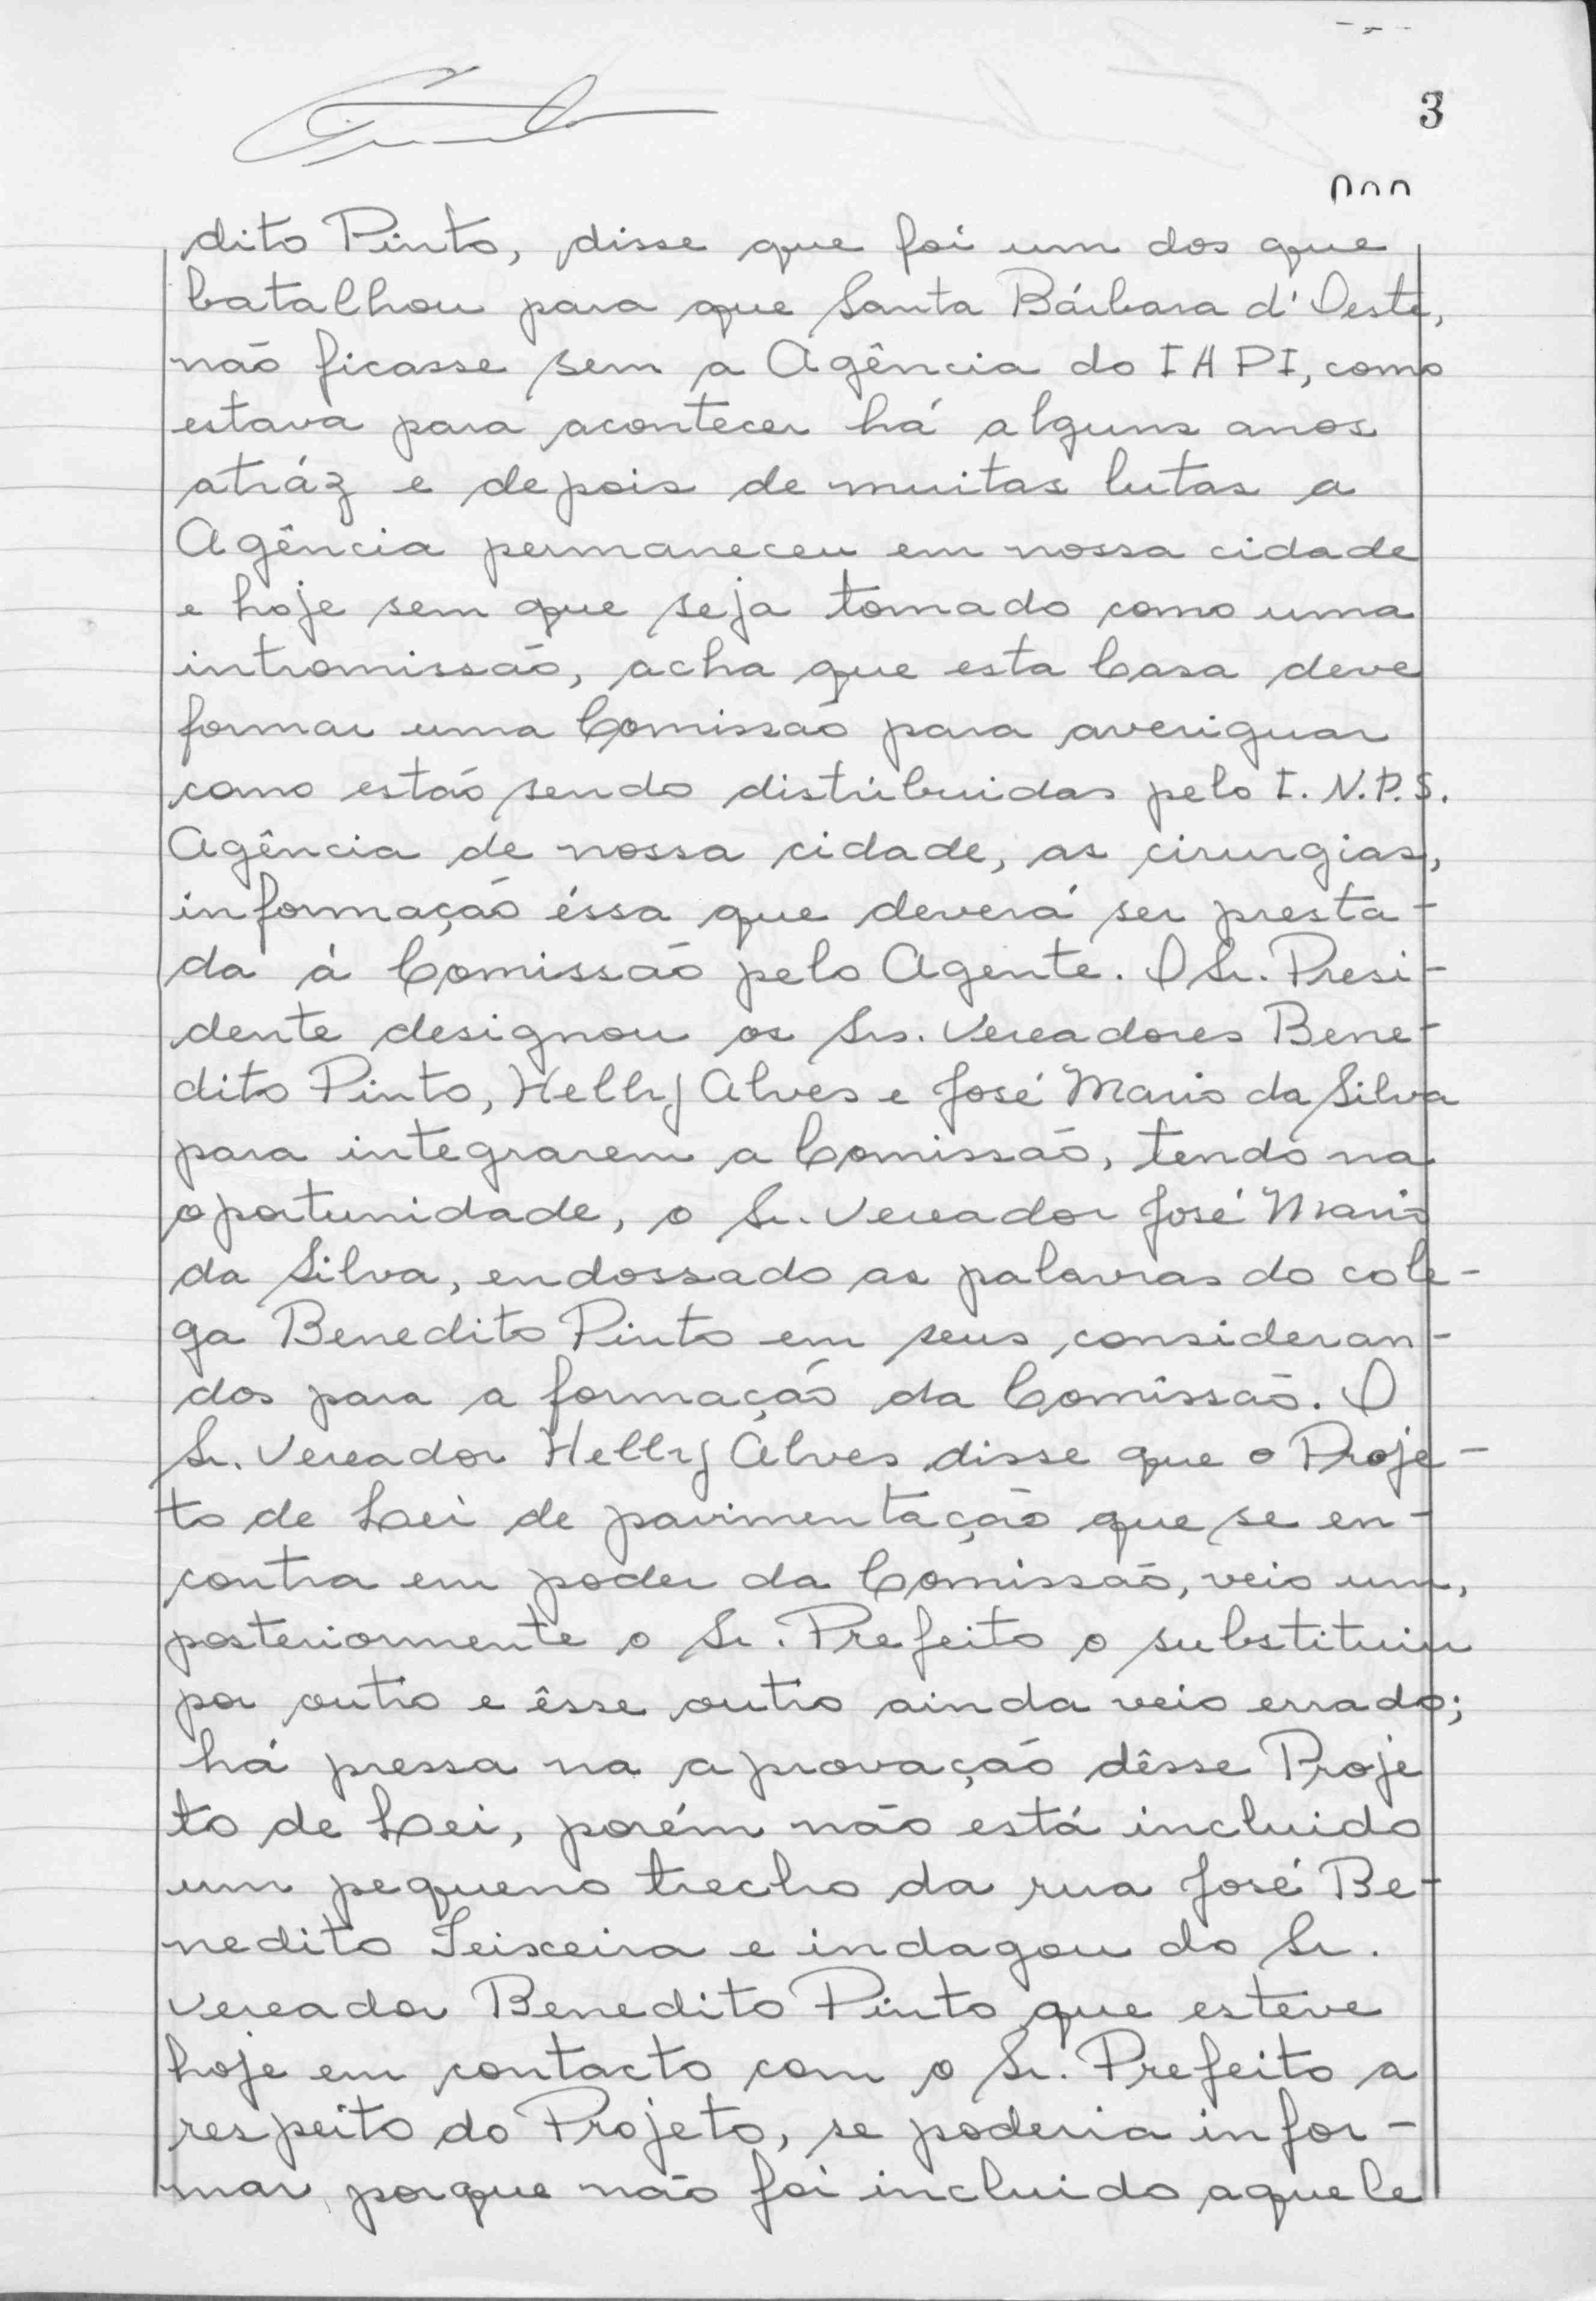 3
dito Pinto, disse que foi um dos que
batalhou para que Santa Bárbara d'Oeste,
não ficasse sem a Agência do IAPI, como
estava para acontecer há alguns anos
atráz e depois de muitas lutas a
Agência permaneceu em nossa cidade
e hoje sem que seja tomado como uma
intromissão, acha que esta Casa deve
formar uma Comissão para averiguar
como estão sendo distribuidas pelo I.N.P.S.
Agência de nossa cidade, as cirurgias,
informação éssa que deverá ser presta-
da à Comissão pelo Agente. O Sr. Presi-
dente designou os Srs. Vereadores Bene-
dito Pinto, Helly Alves e José Mario da Silva
para integrarem a Comissão, tendo na
oportunidade, o Sr. Vereador José Mario
da Silva, endossado as palavras do cole-
ga Benedito Pinto em seus consideran-
dos para a formação da Comissão. O
Sr. Vereador Helly Alves disse que o Proje-
to de Lei de pavimentação que se en-
contra em poder da Comissão, veio um,
posteriormente o Sr. Prefeito o substituiu
por outro e êsse outro ainda veio errado;
há pressa na aprovação dêsse Proje
to de Lei, porém não está incluido
um pequeno trecho da rua José Be-
nedito Teixeira e indagou do Sr.
Vereador Benedito Pinto que esteve
hoje em contacto com o Sr. Prefeito a
respeito do Projeto, se poderia infor-
mar porque não foi incluido aquele